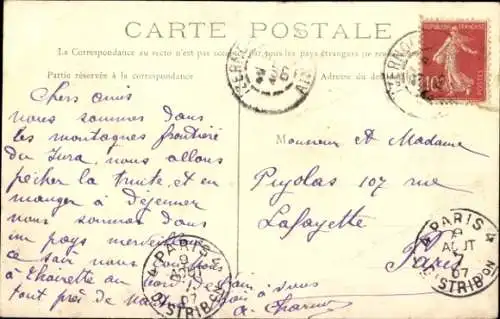 CARTE POSTALE
La Correspondance au recto n'est pas par tous les pays étrangers pe
Partie réservée à la correspondance
Adresse du de
IZERN
AIN
10
POSTES
Chers amis
nous sommes dans
les montagnes frontière
du Jura, nous allons
pêcher la truite, et en
manger à Déjeuner
nous sommes dans
un pays merveilleux
ce soir nous
à
tout près de
Monsieur et Madame
Pujolas 107 rue
Lafayette
Paris
PARIS
9
AOUT
07
DISTRIBON
PARIS
9
07
DISTRIBON